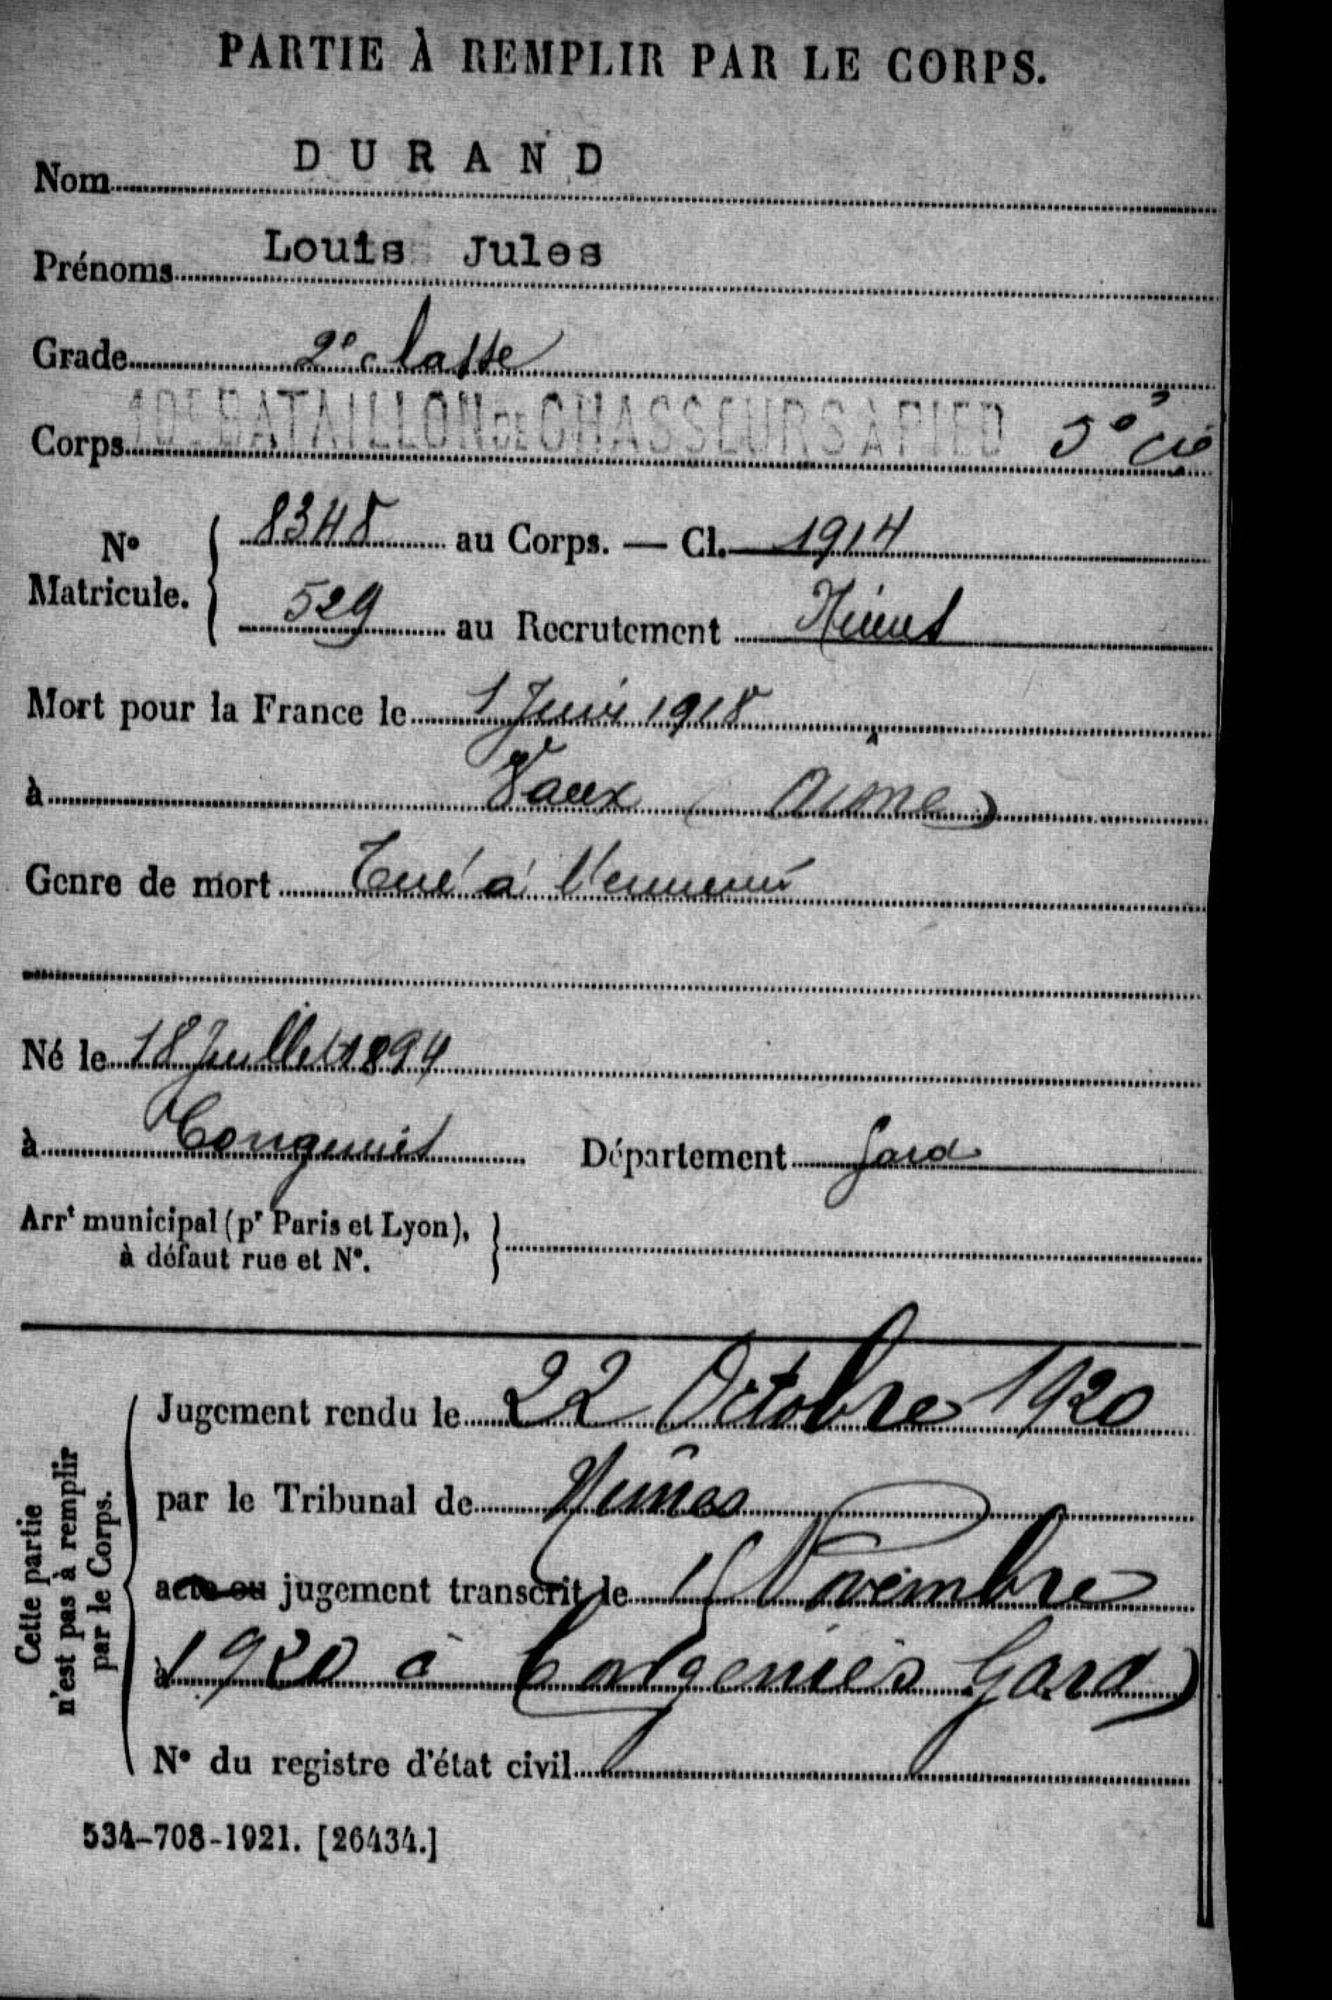 PARTIE À REMPLIR PAR LE CORPS.
Nom DURAND
Prénoms Louis Jules
Grade 2e classe
Corps 10E BATAILLON DE CHASSEURS À PIED 5e Cie
No Matricule. 8348 au Corps. — Cl. 1914
529 au Recrutement Nîmes
Mort pour la France le 1 Juin 1918
à Vaux (Aisne)
Genre de mort Tué à l'ennemi
Né le 18 Juillet 1894
à Congeniès Département Gard
Arrt municipal (pr Paris et Lyon),
à défaut rue et No.
Jugement rendu le 22 Octobre 1920
par le Tribunal de Nîmes
acte ou jugement transcrit le Novembre
à 1920 à Congeniès Gard)
No du registre d'état civil
Cette partie
n'est pas à remplir
par le Corps.
534-708-1921. [26434.]